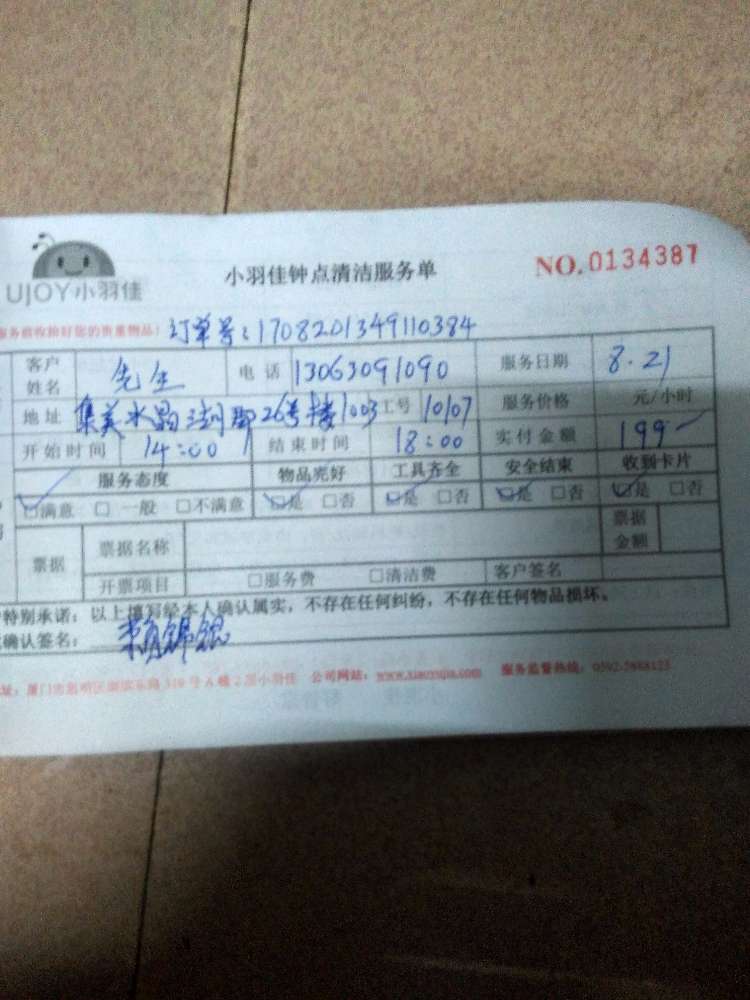 UJOY小羽佳
小羽佳钟点清洁服务单
NO.0134387
服务前收拾好您的贵重物品! 订单号:1708201349110384
客户姓名 先生 电话 13063091090 服务日期 8.21
地址 集美水晶湖郡26号楼1003 工号 10107 服务价格 元/小时
开始时间 14:00 结束时间 18:00 实付金额 199
服务态度 物品完好 工具齐全 安全结束 收到卡片
☑满意 □一般 □不满意 ☑是 □否 ☑是 □否 ☑是 □否 ☑是 □否
票据 票据名称 票据金额
开票项目 □服务费 □清洁费 客户签名
特别承诺:以上填写经本人确认属实,不存在任何纠纷,不存在任何物品损坏。
确认签名:赖锦锟
址:厦门市思明区湖滨东路319号A幢2层小羽佳 公司网站:www.xiaoyujia.com 服务监督热线:0592-5888123